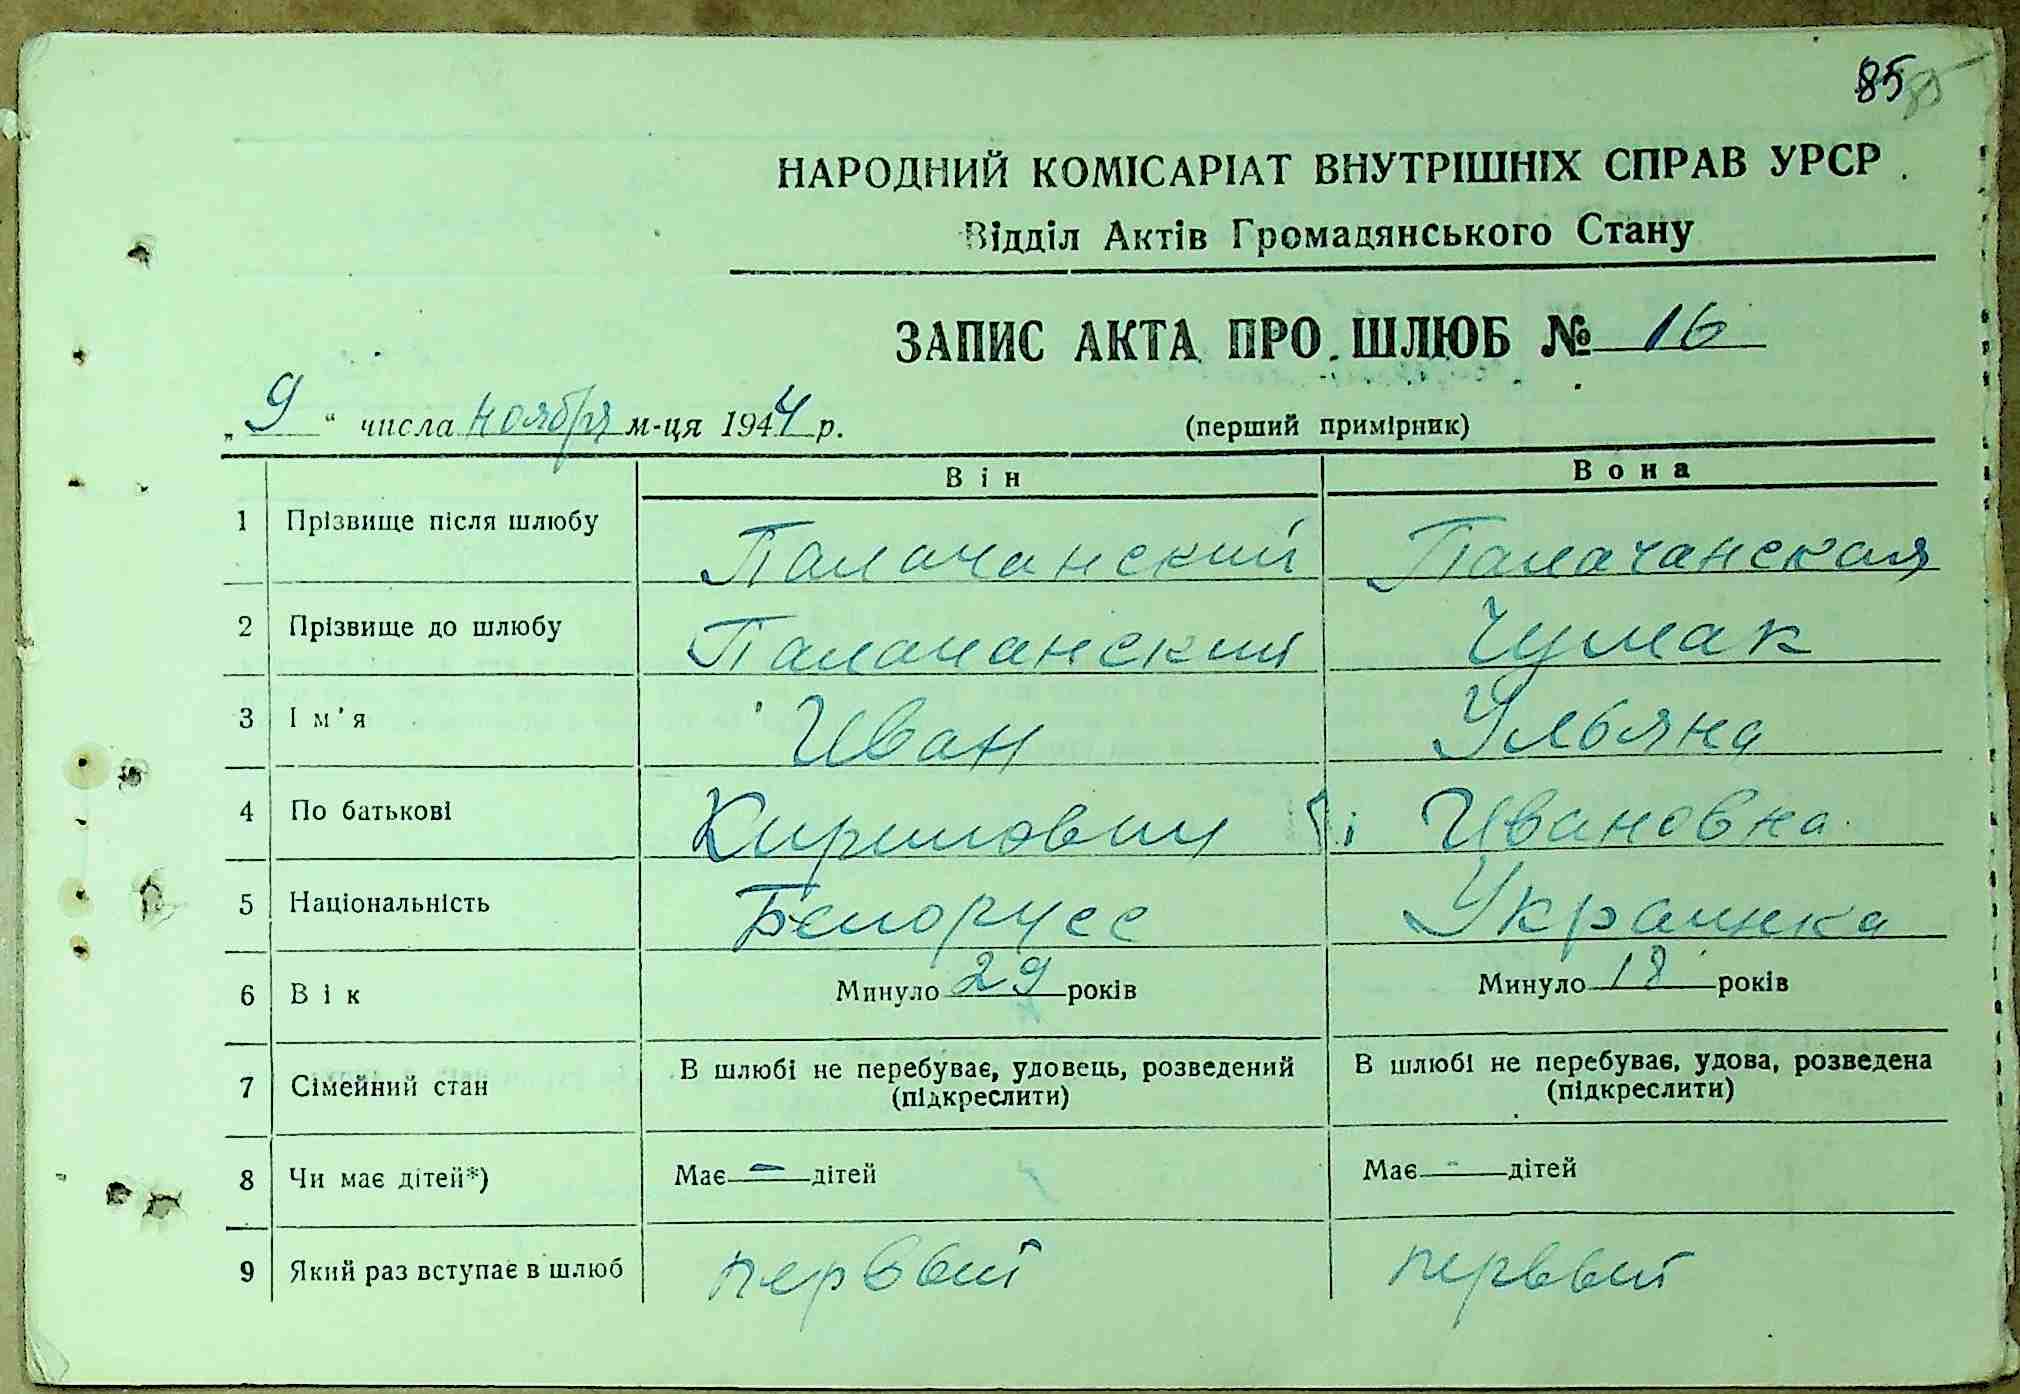 85 85
НАРОДНИЙ КОМІСАРІАТ ВНУТРІШНІХ СПРАВ УРСР
Відділ Актів Громадянського Стану
ЗАПИС АКТА ПРО ШЛЮБ № 16
„9“ числа ноября м-ця 1944 р. (перший примірник)
Він Вона
1 Прізвище після шлюбу Палачанский Палачанская
2 Прізвище до шлюбу Палачанский Чумак
3 Ім'я Иван Ульяна
4 По батькові Кирилович Ивановна
5 Національність Белорусс Украинка
6 Вік Минуло 29 років Минуло 18 років
7 Сімейний стан В шлюбі не перебуває, удовець, розведений (підкреслити) В шлюбі не перебуває, удова, розведена (підкреслити)
8 Чи має дітей*) Має — дітей Має - дітей
9 Який раз вступає в шлюб первый первый